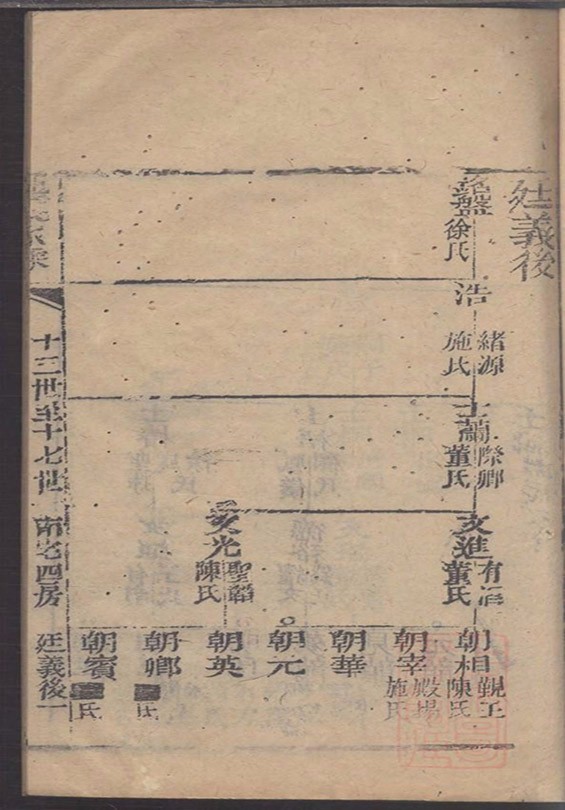 廷義後
銘盤
徐氏
浩
緒源
施氏
士蘭
際鄉
董氏
文進
有
董氏
文光
聖韜
陳氏
朝相
覲王
陳氏
朝宰
殿揚
施氏
朝華
朝元
朝英
朝卿
氏
朝賓
氏
十三世至十七世
南宅四房
廷義後一